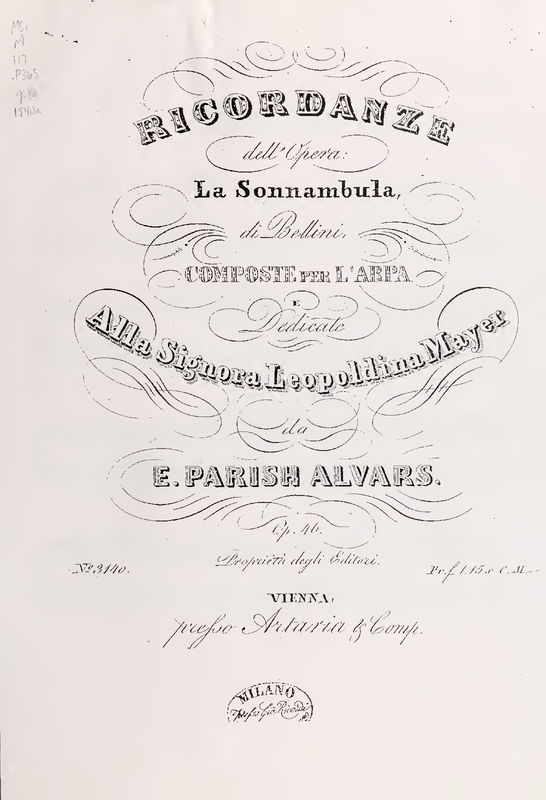 Ms.
M
117
.P365
1840a
RICORDANZE
dell'Opera:
La Sonnambula,
di Bellini,
COMPOSTE PER L'ARPA
E
Dedicate
Alla Signora Leopoldina Mayer
da
E. PARISH ALVARS.
Op. 46.
Proprietà degli Editori.
No. 3140.
Pr. f. 1.15 x C. M.
VIENNA,
presso Artaria & Comp.
MILANO
presso Gio. Ricordi